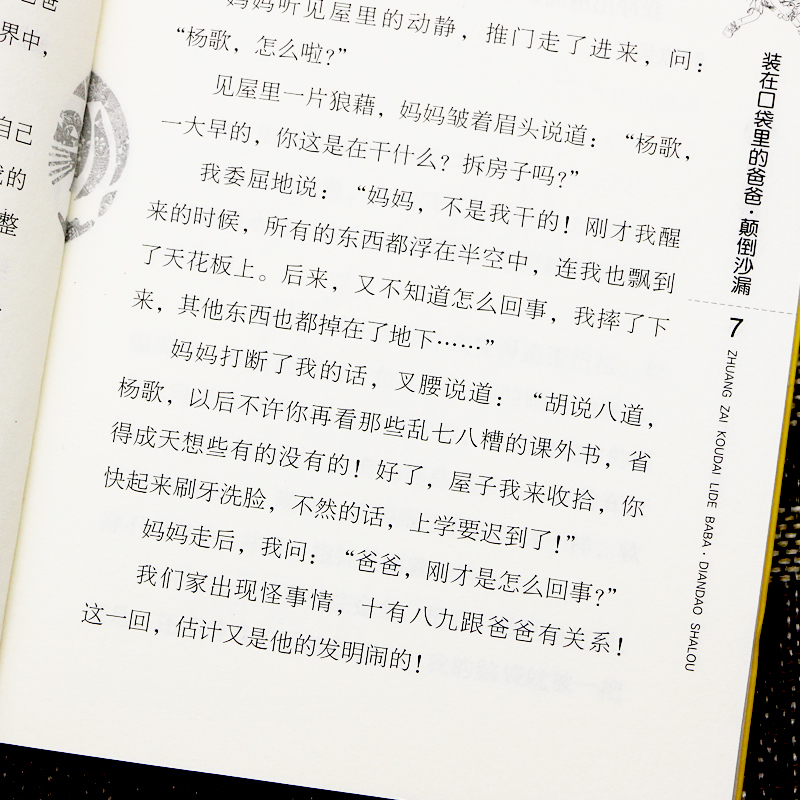 爸
界中，
自己
的
整
妈妈听见屋里的动静，推门走了进来，问：
“杨歌，怎么啦？”
见屋里一片狼藉，妈妈皱着眉头说道：“杨歌，
一大早的，你这是在干什么？拆房子吗？”
我委屈地说：“妈妈，不是我干的！刚才我醒
来的时候，所有的东西都浮在半空中，连我也飘到
了天花板上。后来，又不知道怎么回事，我摔了下
来，其他东西也都掉在了地下……”
妈妈打断了我的话，叉腰说道：“胡说八道，
杨歌，以后不许你再看那些乱七八糟的课外书，省
得成天想些有的没有的！好了，屋子我来收拾，你
快起来刷牙洗脸，不然的话，上学要迟到了！”
妈妈走后，我问：“爸爸，刚才是怎么回事？”
我们家出现怪事情，十有八九跟爸爸有关系！
这一回，估计又是他的发明闹的！
装在口袋里的爸爸·颠倒沙漏
7
ZHUANG ZAI KOUDAI LIDE BABA · DIANDAO SHALOU